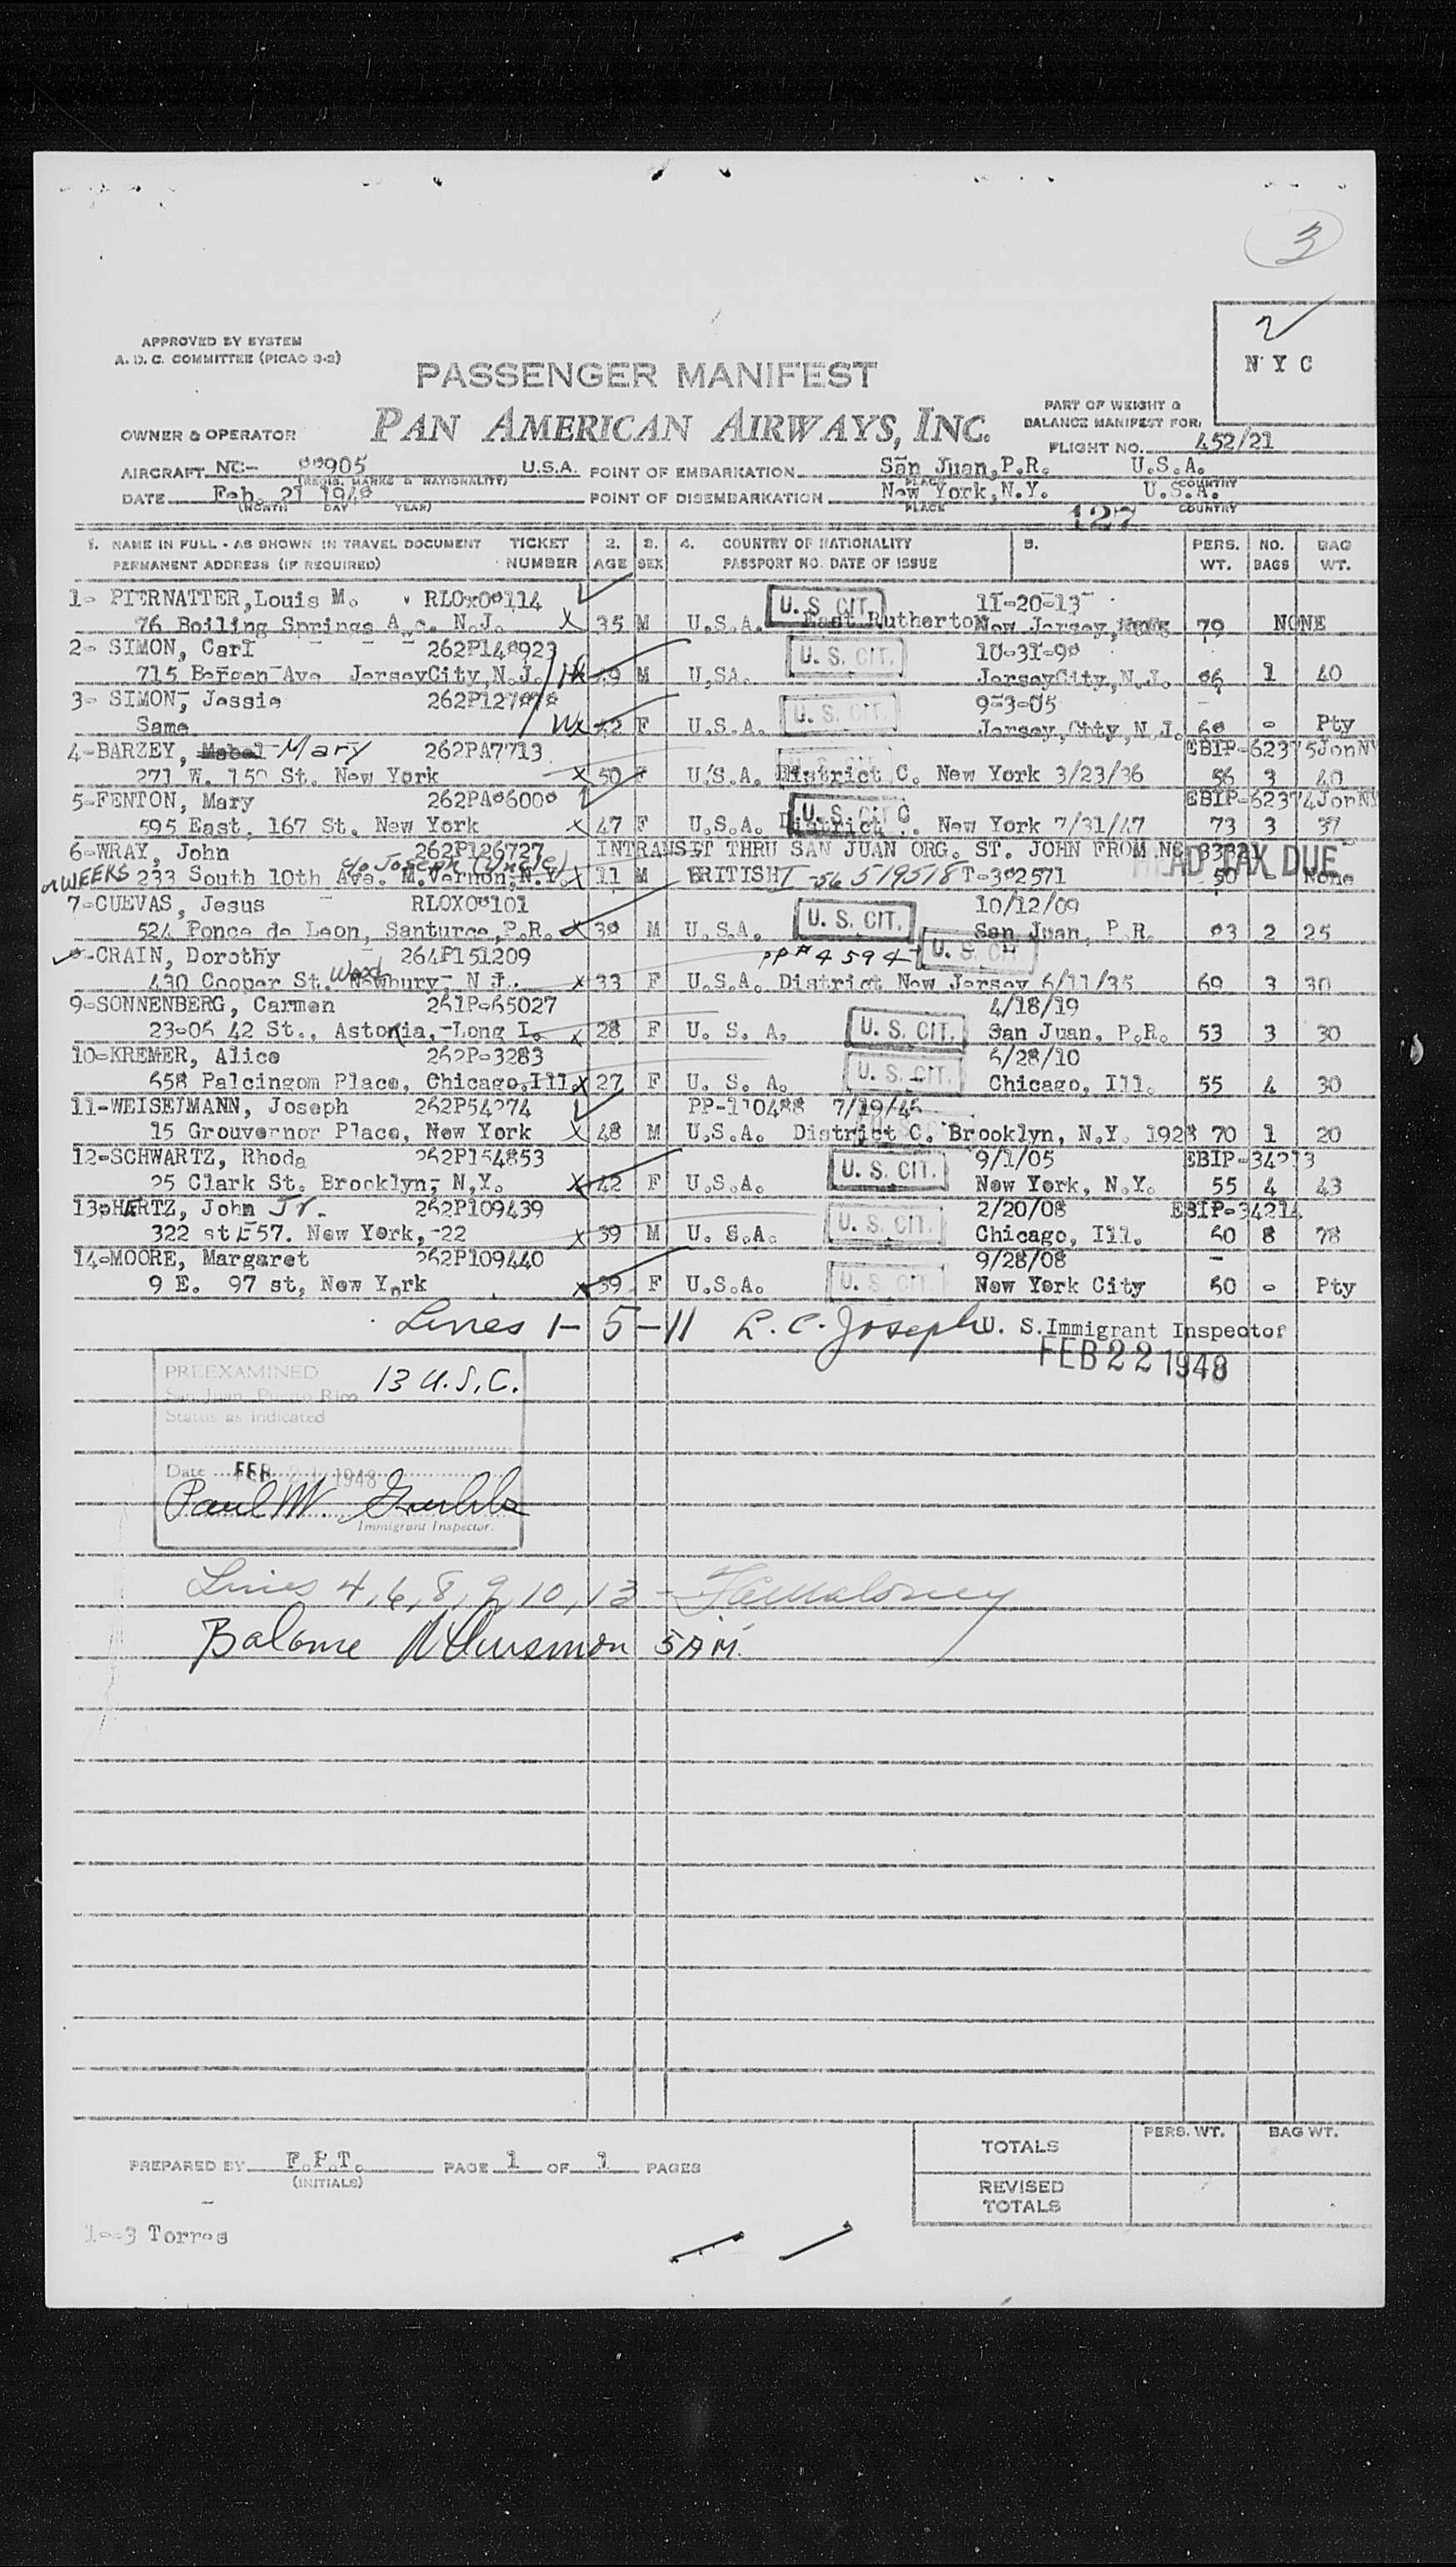 3
2
N Y C
APPROVED BY SYSTEM
A. D. C. COMMITTEE (PICAO 3-2)
PASSENGER MANIFEST
PAN AMERICAN AIRWAYS, INC.
PART OF WEIGHT &
BALANCE MANIFEST FOR:
OWNER & OPERATOR
FLIGHT NO. 452/21
AIRCRAFT NC- 88905 U.S.A. POINT OF EMBARKATION San Juan, P.R. U.S.A.
(REGIS. MARKS & NATIONALITY) PLACE COUNTRY
DATE Feb. 21 1948 POINT OF DISEMBARKATION New York, N.Y. U.S.A.
(MONTH DAY YEAR) PLACE COUNTRY
127
1. NAME IN FULL - AS SHOWN IN TRAVEL DOCUMENT TICKET 2. 3. 4. COUNTRY OF NATIONALITY 5. PERS. NO. BAG
PERMANENT ADDRESS (IF REQUIRED) NUMBER AGE SEX PASSPORT NO. DATE OF ISSUE WT. BAGS WT.
1- PIERNATTER, Louis M. U.S. CIT. 11-20-13
76 Boiling Springs N.J. X 35 M U.S.A. East Rutherton New Jersey, 79 NONE
2- SIMON, Carl 262P148923 U. S. CIT. 10-31-98
715 Bergen Ave Jersey City, N.J. 49 M U,SA. Jersey City, N.J. 86 1 40
3- SIMON, Jessie U. S. CIT. 9-3-05
Same 42 F U.S.A. Jersey, City, N.J. 60 - Pty
4-BARZEY, Mabel Mary 262PA7713 EBIP-62375JonNY
271 W. 150 St. New York X 50 F U.S.A. District C. New York 3/23/36 56 3 40
5-FENTON, Mary 262PA86000 U.S. CIT EBIP-62374JonNY
595 East, 167 St. New York X 47 F U.S.A. District New York 7/31/47 73 3 37
6-WRAY, John 262P126727 INTRANSIT THRU SAN JUAN ORG. ST. JOHN FROM HEAD TAX DUE
c/o Joseph (Uncle)
WEEKS 233 South 10th Ave. M.Vernon, N.Y. X 11 M BRITISH I-56 519518 T-382571 50 None
7-CUEVAS, Jesus RLOX08101 U.S. CIT. 10/12/09
524 Ponce de Leon, Santurce, P.R. X 38 M U.S.A. San Juan, P.R. 83 2 25
8-CRAIN, Dorothy 264P151209 PP# 4594 U. S. CIT
430 Cooper St. Wood Newbury, N J. X 33 F U.S.A. District New Jersey 6/11/35 69 3 30
9-SONNENBERG, Carmen 261P-65027 4/18/19
23-06 42 St., Astoria, -Long I. X 28 F U. S. A. U. S. CIT. San Juan, P.R. 53 3 30
10-KREMER, Alice 262P-3283 6/28/10
658 Palcingom Place, Chicago, Ill. X 27 F U. S. A. U. S. CIT. Chicago, Ill. 55 4 30
11-WEISETMANN, Joseph 262P54274 PP-110488 7/19/46
15 Grouvernor Place, New York X 48 M U.S.A. District C. Brooklyn, N.Y. 1928 70 1 20
12-SCHWARTZ, Rhoda 262P154853 U. S. CIT. 9/1/05 EBIP-34213
25 Clark St. Brooklyn, N.Y. X 42 F U.S.A. New York, N.Y. 55 4 43
13-HARTZ, John Jr. 262P109439 U. S. CIT. 2/20/08 EBIP-34214
322 st E 57. New York, -22 X 39 M U. S.A. Chicago, Ill. 60 8 78
14-MOORE, Margaret 262P109440 9/28/08
9 E. 97 st, New York X 39 F U.S.A. U. S. CIT. New York City 60 - Pty
Lines 1-5-11 L. C. Joseph U. S. Immigrant Inspector
FEB 22 1948
PREEXAMINED 13 U.S.C.
San Juan, Puerto Rico
Status as indicated
Date FEB 21 1948
Paul W. Grubbs
Immigrant Inspector.
Lines 4, 6, 8, 9, 10, 13 -
Balance 5 AM
PREPARED BY F.P.T. PAGE 1 OF 1 PAGES
(INITIALS)
PERS. WT. BAG WT.
TOTALS
REVISED
TOTALS
Torres